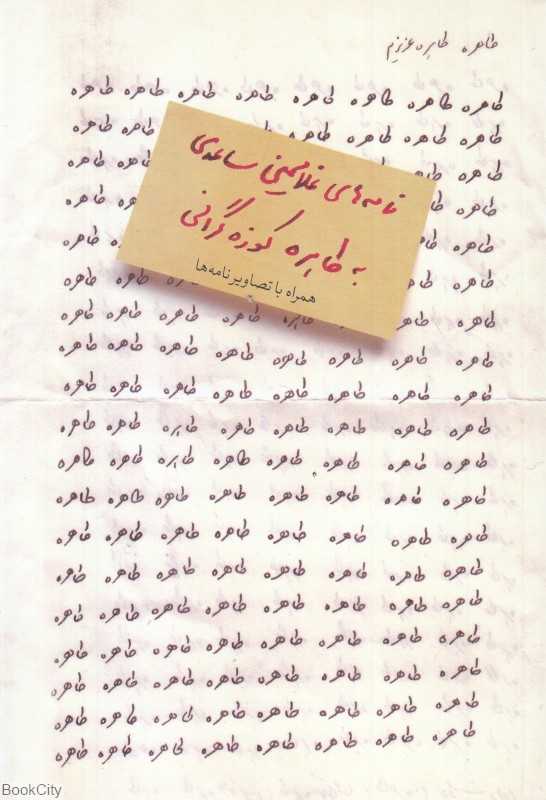 طاهره طاهره عزیزم
طاهره طاهره طاهره طاهره طاهره طاهره طاهره طاهره
طاهره طاهره طاهره طاهره طاهره طاهره
طاهره طاهره طاهره
طاهره طاهره
طاهره طاهره
طاهره طاهره طاهره
طاهره طاهره طاهره طاهره طاهره طاهره
طاهره طاهره طاهره طاهره طاهره طاهره طاهره طاهره
طاهره طاهره طاهره طاهره طاهره طاهره طاهره طاهره
طاهره طاهره طاهره طاهره طاهره طاهره طاهره طاهره
طاهره طاهره طاهره طاهره طاهره طاهره طاهره طاهره
طاهره طاهره طاهره طاهره طاهره طاهره طاهره طاهره
طاهره طاهره طاهره طاهره طاهره طاهره طاهره طاهره
طاهره طاهره طاهره طاهره طاهره طاهره طاهره طاهره
طاهره طاهره طاهره طاهره طاهره طاهره طاهره طاهره
طاهره طاهره طاهره طاهره طاهره طاهره طاهره طاهره
طاهره طاهره طاهره طاهره طاهره طاهره طاهره طاهره
طاهره طاهره طاهره طاهره طاهره طاهره طاهره طاهره
طاهره طاهره طاهره طاهره طاهره طاهره طاهره طاهره
نامه‌های غلامحسین ساعدی
به طاهره کوزه گرانی
همراه با تصاویر نامه‌ها
BookCity